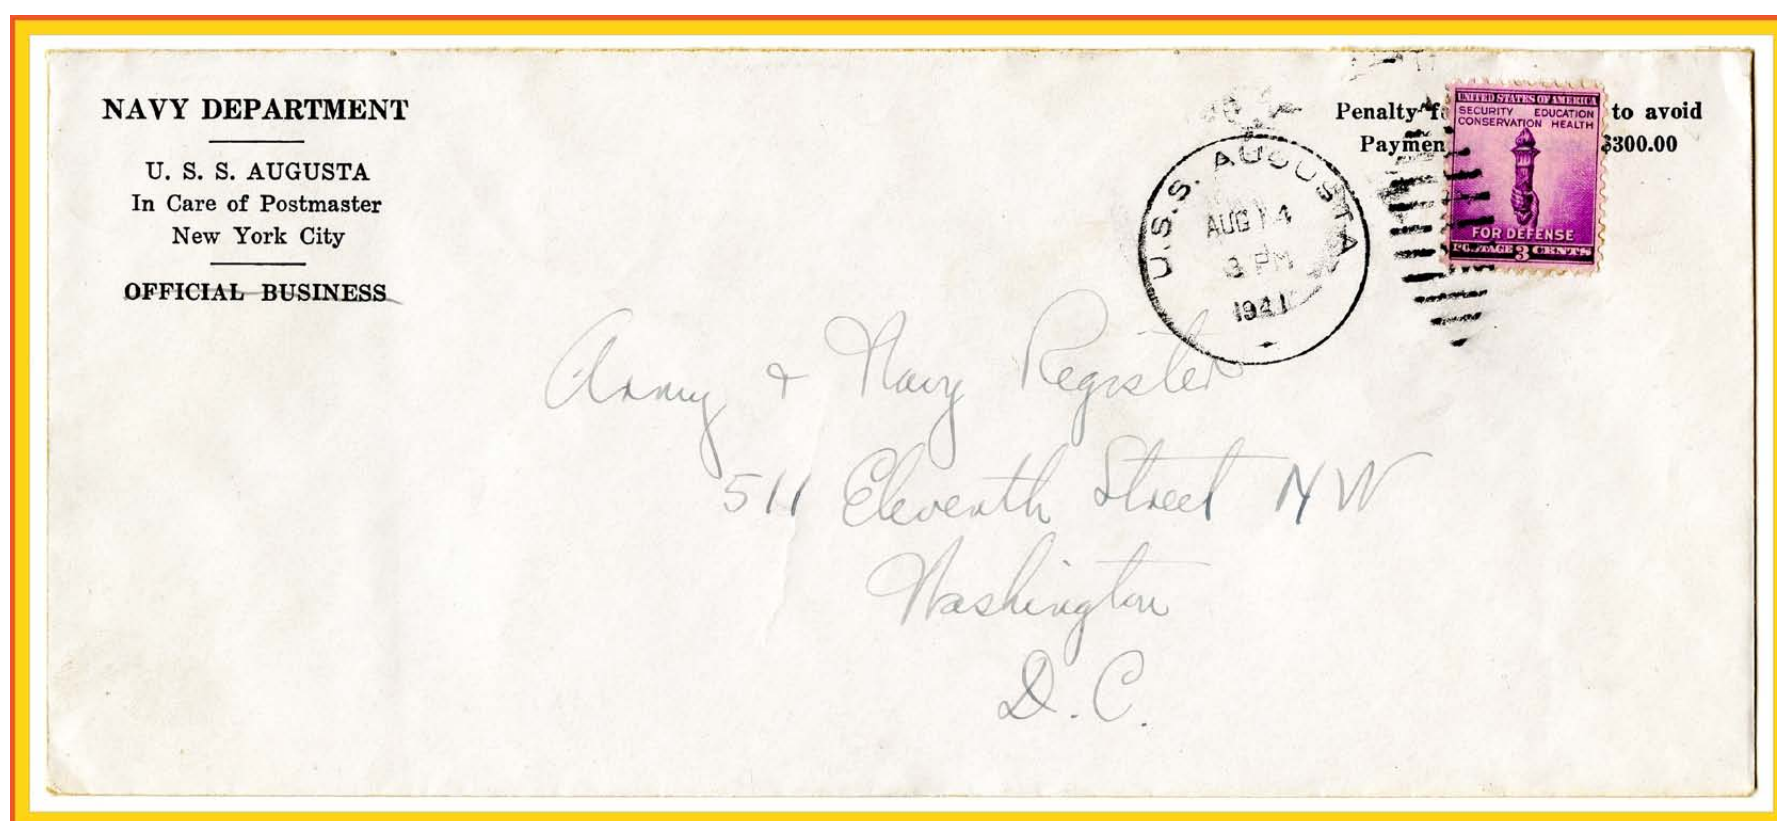 NAVY DEPARTMENT
U. S. S. AUGUSTA
In Care of Postmaster
New York City
OFFICIAL BUSINESS
Penalty f to avoid
Paymen $300.00
UNITED STATES OF AMERICA
SECURITY EDUCATION
CONSERVATION HEALTH
FOR DEFENSE
POSTAGE 3 CENTS
U.S.S. AUGUSTA
AUG 14
3 PM
1941
Army & Navy Register
511 Eleventh Street NW
Washington
D.C.